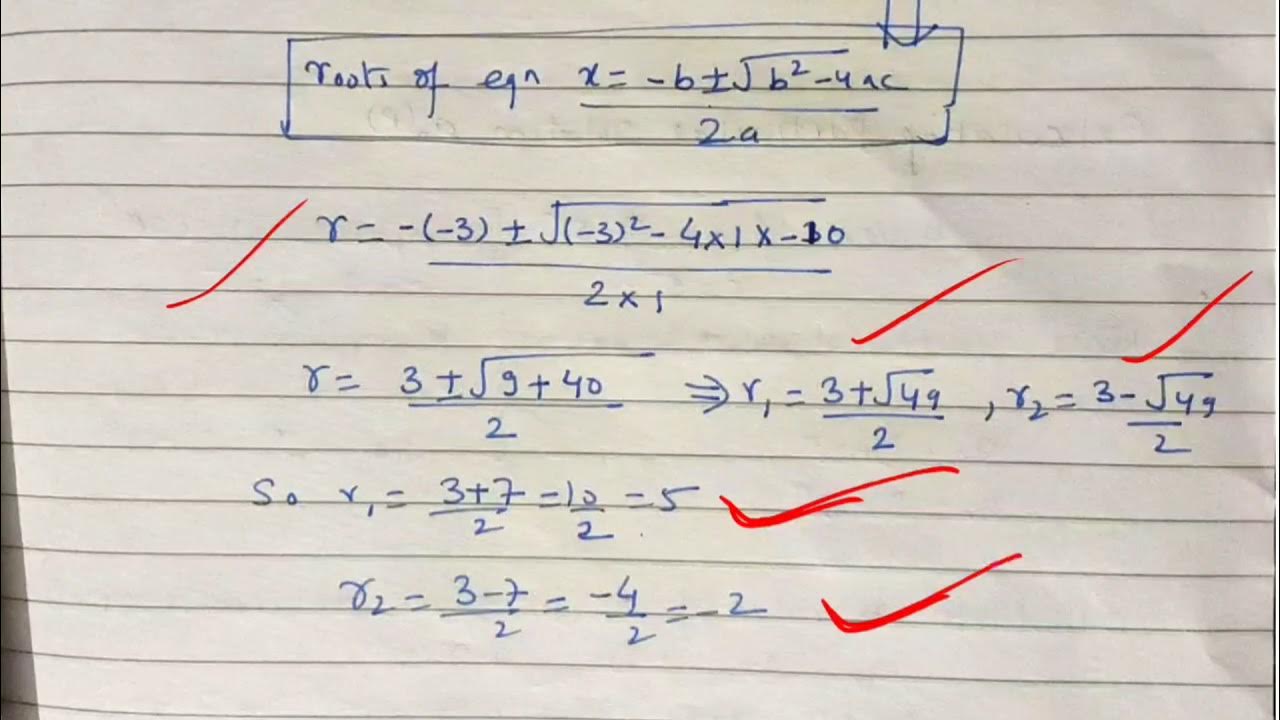 roots of eqn x = -b ± √b² - 4ac
2a
r = -(-3) ± √(-3)² - 4 x 1 x -10
2 x 1
r = 3 ± √9 + 40 ⇒ r₁ = 3 + √49 , r₂ = 3 - √49
2 2 2
So r₁ = 3+7 = 10 = 5
2 2
r₂ = 3-7 = -4 = -2
2 2